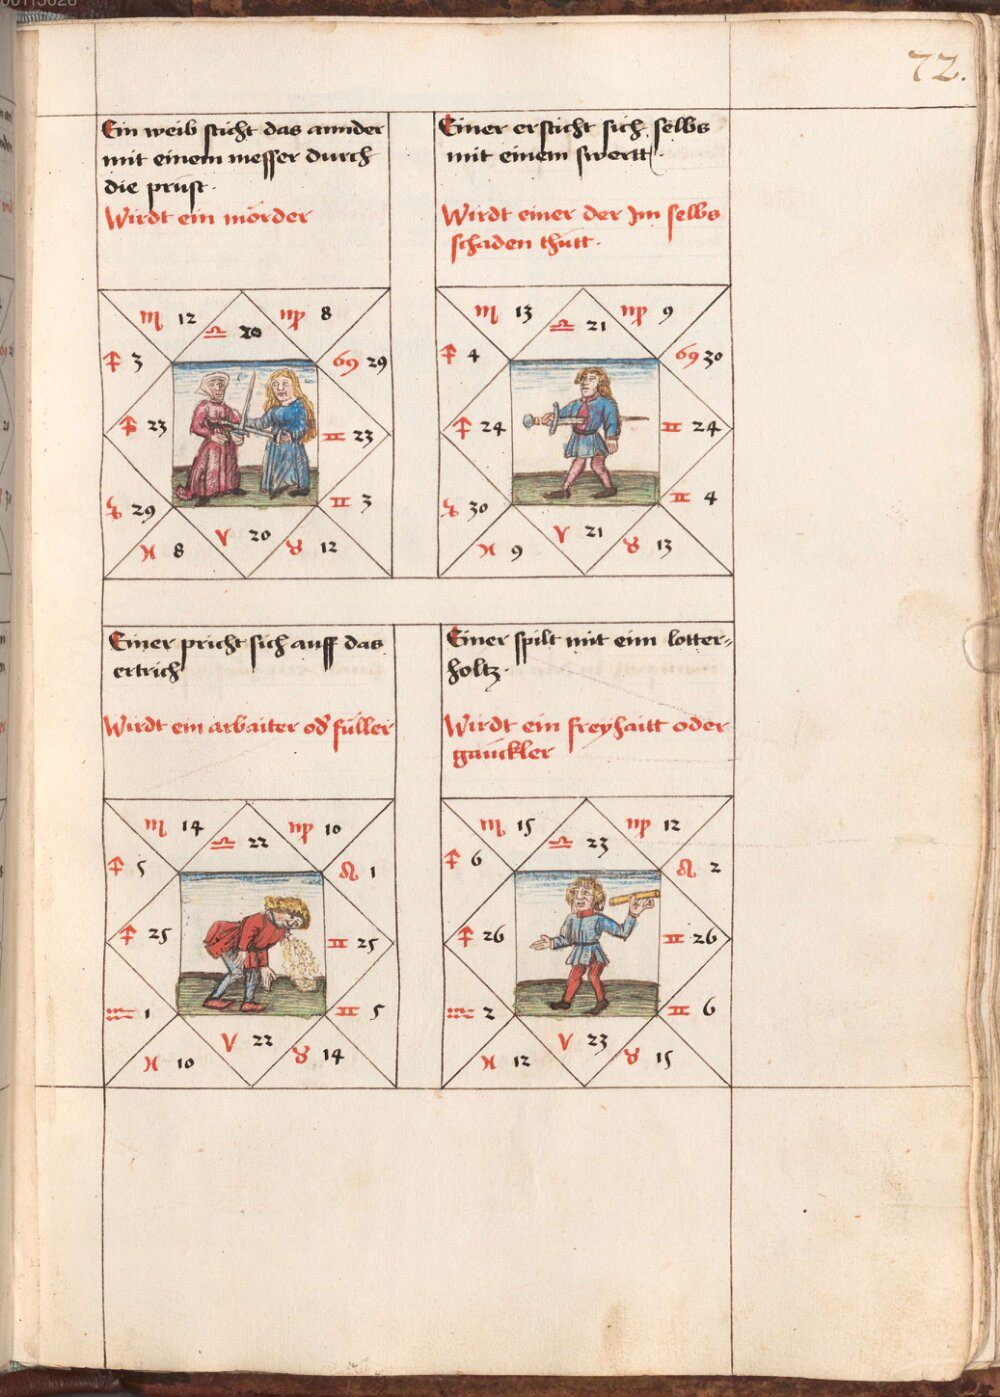 72.
Ein weib sticht das annder
mit einem messer durch
die prust.
Wirdt ein mörder
♏ 12 ♎ 20 ♍ 8
♐ 3 ♋ 29
♐ 23 ♊ 23
♑ 29 ♊ 3
♓ 8 ♈ 20 ♉ 12
Einer ersticht sich selbs
mit einem swertt.
Wirdt einer der Im selbs
schaden thutt.
♏ 13 ♎ 21 ♍ 9
♐ 4 ♋ 30
♐ 24 ♊ 24
♑ 30 ♊ 4
♓ 9 ♈ 21 ♉ 13
Einer pricht sich auff das
ertrich
Wirdt ein arbaiter od füller
♏ 14 ♎ 22 ♍ 10
♐ 5 ♌ 1
♐ 25 ♊ 25
♒ 1 ♊ 5
♓ 10 ♈ 22 ♉ 14
Einer spilt mit eim lotter=
holtz.
Wirdt ein freyhaitt oder
gauckler
♏ 15 ♎ 23 ♍ 12
♐ 6 ♌ 2
♐ 26 ♊ 26
♒ 2 ♊ 6
♓ 12 ♈ 23 ♉ 15